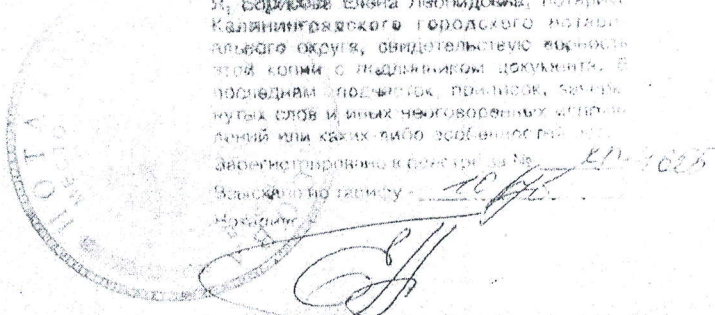 Я, Борисова Елена Леонидовна, нотариус
Калининградского городского нотари-
ального округа, свидетельствую верность
этой копии с подлинником документа. В
последнем подчисток, приписок, зачерк-
нутых слов и иных неоговоренных исправ-
лений или каких-либо особенностей нет.
Зарегистрировано в реестре за №
Взыскано по тарифу - 10 руб.
Нотариус
НОТА
МЕСТО